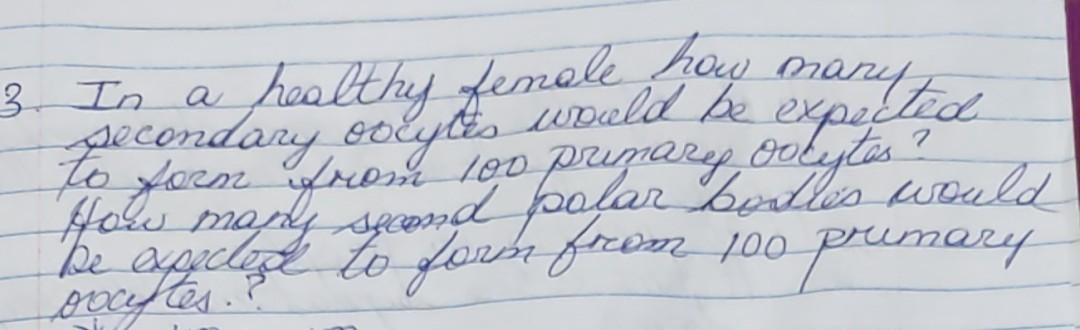 3. In a healthy female how many
secondary oocytes would be expected
to form from 100 primary oocytes?
How many second polar bodies would
be expected to form from 100 primary
oocytes.?